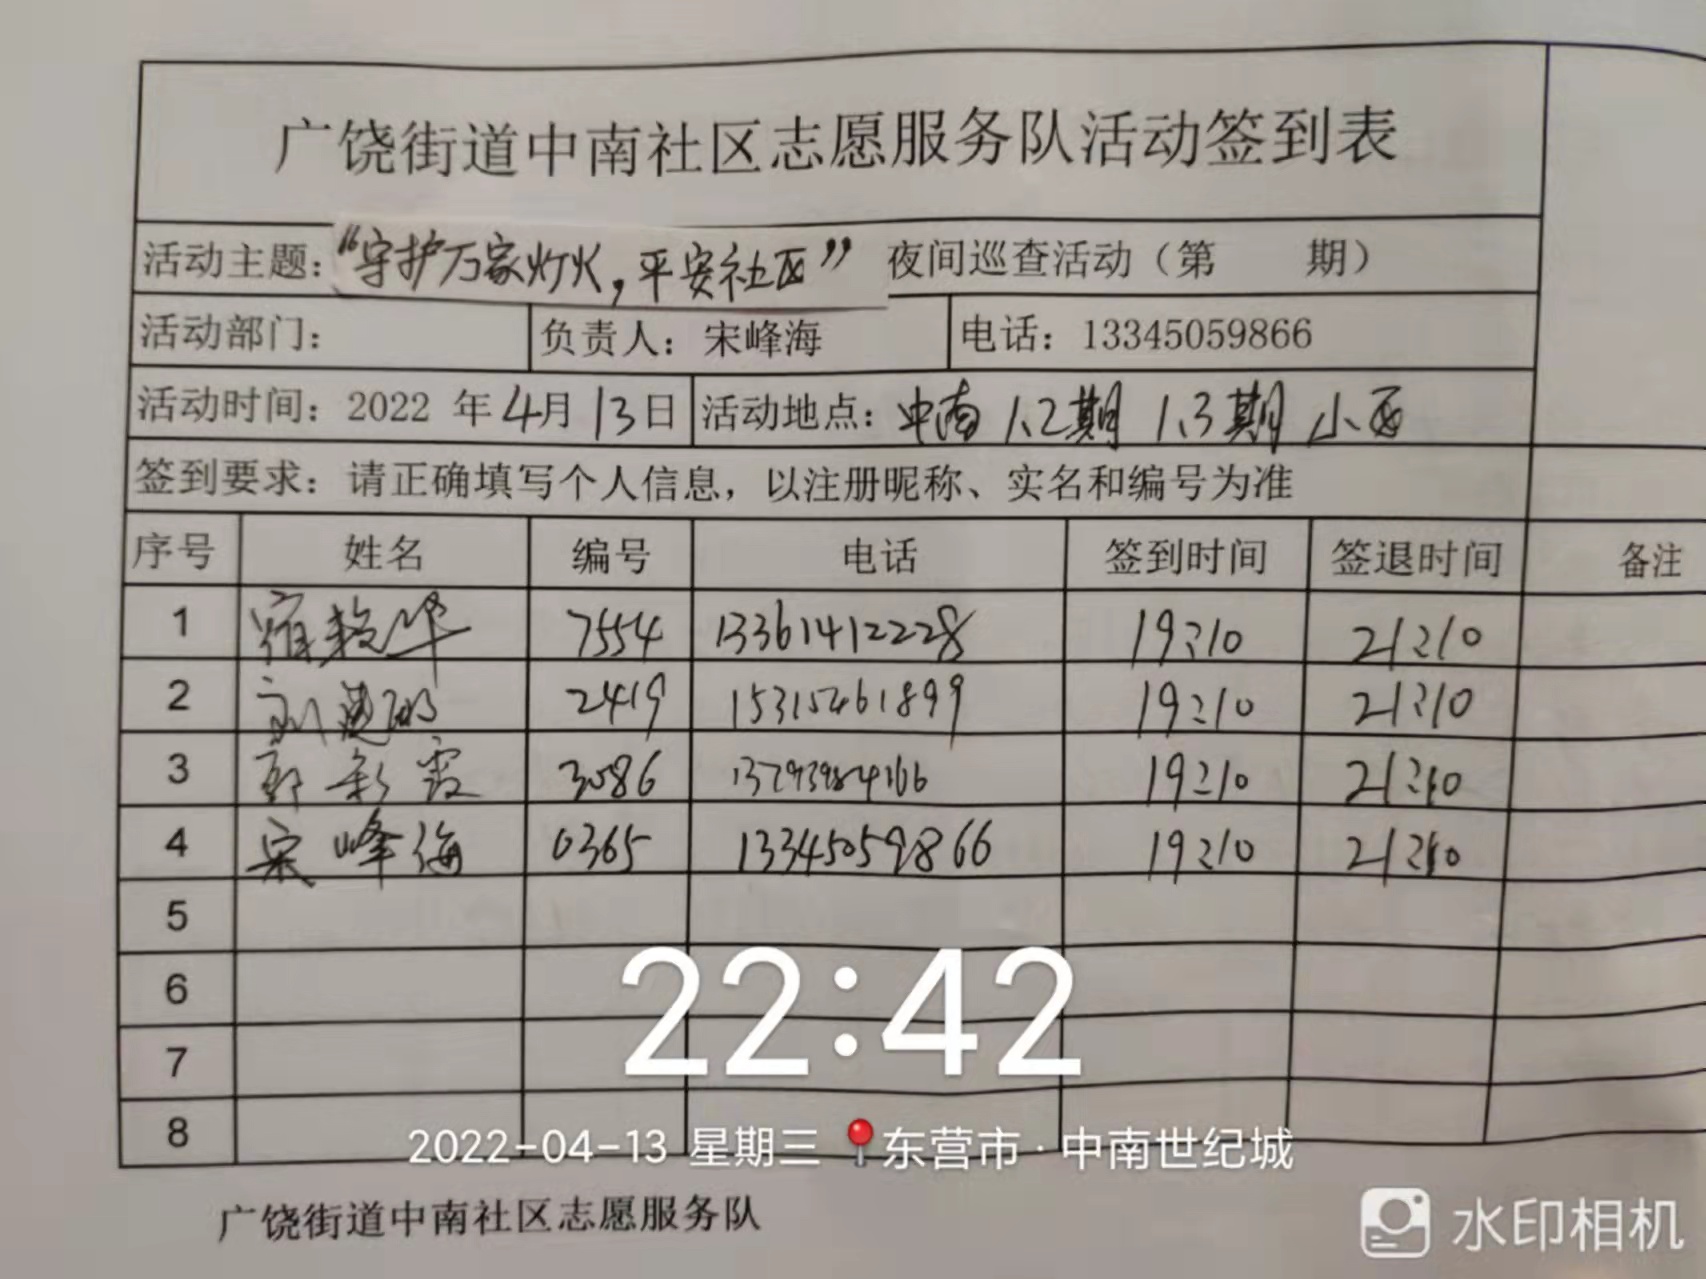 广饶街道中南社区志愿服务队活动签到表
活动主题：“守护万家灯火，平安社区”夜间巡查活动（第 期）
活动部门： 负责人：宋峰海 电话：13345059866
活动时间：2022 年4月13日 活动地点：中南1.2期 1.3期 小区
签到要求：请正确填写个人信息，以注册昵称、实名和编号为准
序号 姓名 编号 电话 签到时间 签退时间 备注
1 7554 13361412228 19:10 21:10
2 2419 19:10 21:10
3 郭彩霞 3086 19:10 21:10
4 宋峰海 0365 13345059866 19:10 21:10
5
6
7
8
22:42
2022-04-13 星期三 东营市·中南世纪城
广饶街道中南社区志愿服务队
水印相机